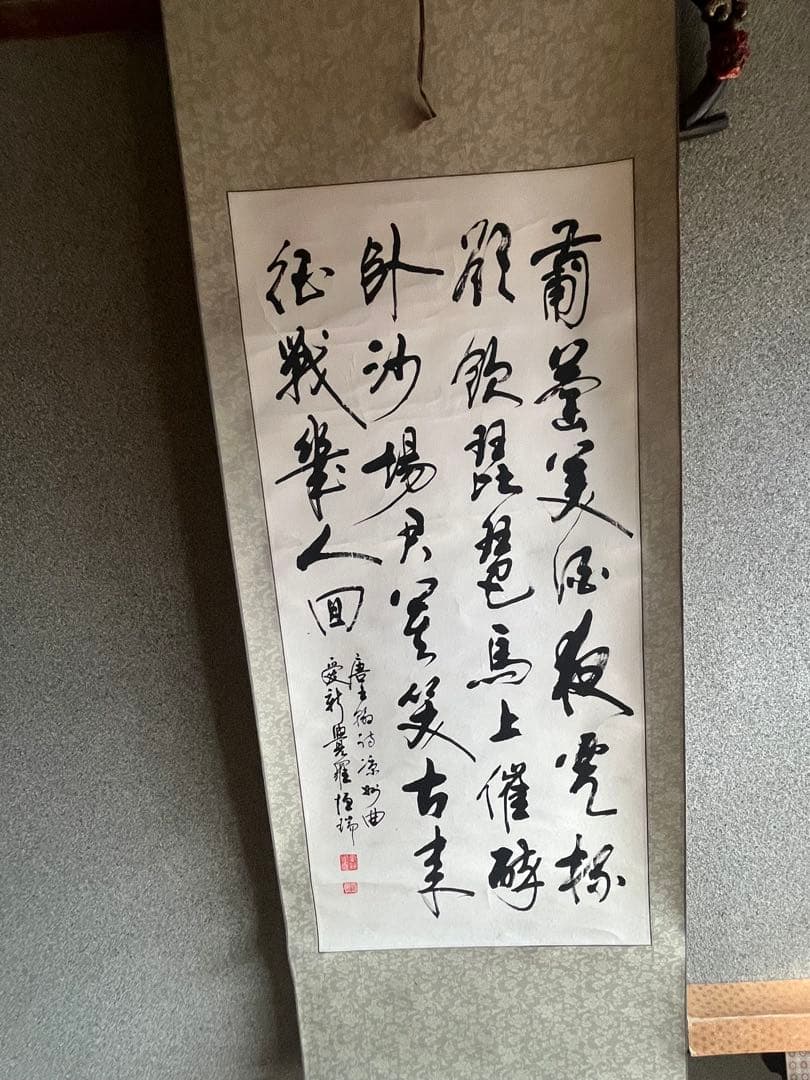 葡萄美酒夜光杯
欲飲琵琶馬上催醉
卧沙場君莫笑古来
征戰幾人回
唐王翰詩凉州曲
愛新覺羅恒瑞